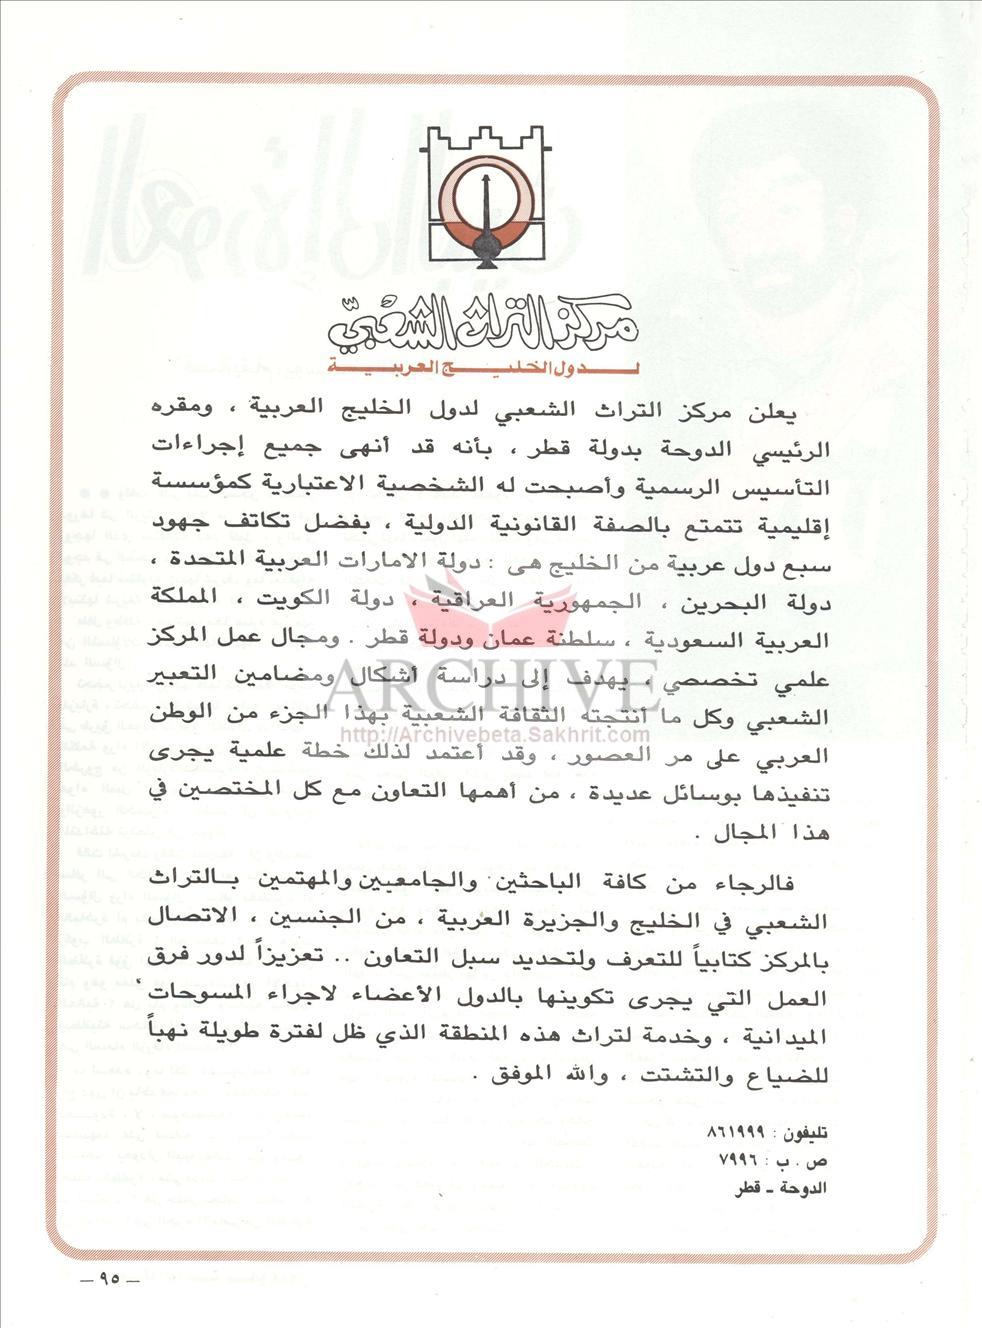 مركز التراث الشعبي
لدول الخليج العربية
يعلن مركز التراث الشعبي لدول الخليج العربية ، ومقره
الرئيسي الدوحة بدولة قطر ، بأنه قد أنهى جميع إجراءات
التأسيس الرسمية وأصبحت له الشخصية الاعتبارية كمؤسسة
إقليمية تتمتع بالصفة القانونية الدولية ، بفضل تكاتف جهود
سبع دول عربية من الخليج هى : دولة الامارات العربية المتحدة ،
دولة البحرين ، الجمهورية العراقية ، دولة الكويت ، المملكة
العربية السعودية ، سلطنة عمان ودولة قطر . ومجال عمل المركز
علمي تخصصي ، يهدف إلى دراسة أشكال ومضامين التعبير
الشعبي وكل ما أنتجته الثقافة الشعبية بهذا الجزء من الوطن
العربي على مر العصور ، وقد أعتمد لذلك خطة علمية يجرى
تنفيذها بوسائل عديدة ، من أهمها التعاون مع كل المختصين في
هذا المجال .
فالرجاء من كافة الباحثين والجامعيين والمهتمين بالتراث
الشعبي في الخليج والجزيرة العربية ، من الجنسين ، الاتصال
بالمركز كتابياً للتعرف ولتحديد سبل التعاون .. تعزيزاً لدور فرق
العمل التي يجرى تكوينها بالدول الأعضاء لاجراء المسوحات
الميدانية ، وخدمة لتراث هذه المنطقة الذي ظل لفترة طويلة نهباً
للضياع والتشتت ، والله الموفق .
تليفون : ٨٦١٩٩٩
ص . ب : ٧٩٩٦
الدوحة - قطر
— ٩٥ —
ARCHIVE
http://Archivebeta.Sakhrit.com